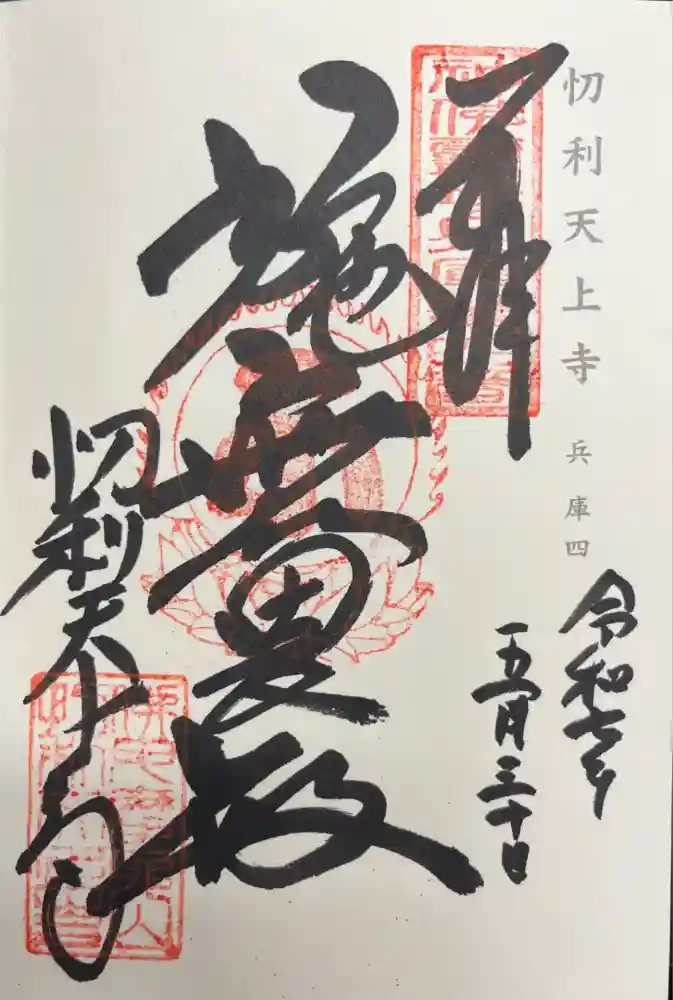 忉利天上寺 兵庫四
令和七年
五月三十日
奉拝
施無畏殿
忉利天上寺